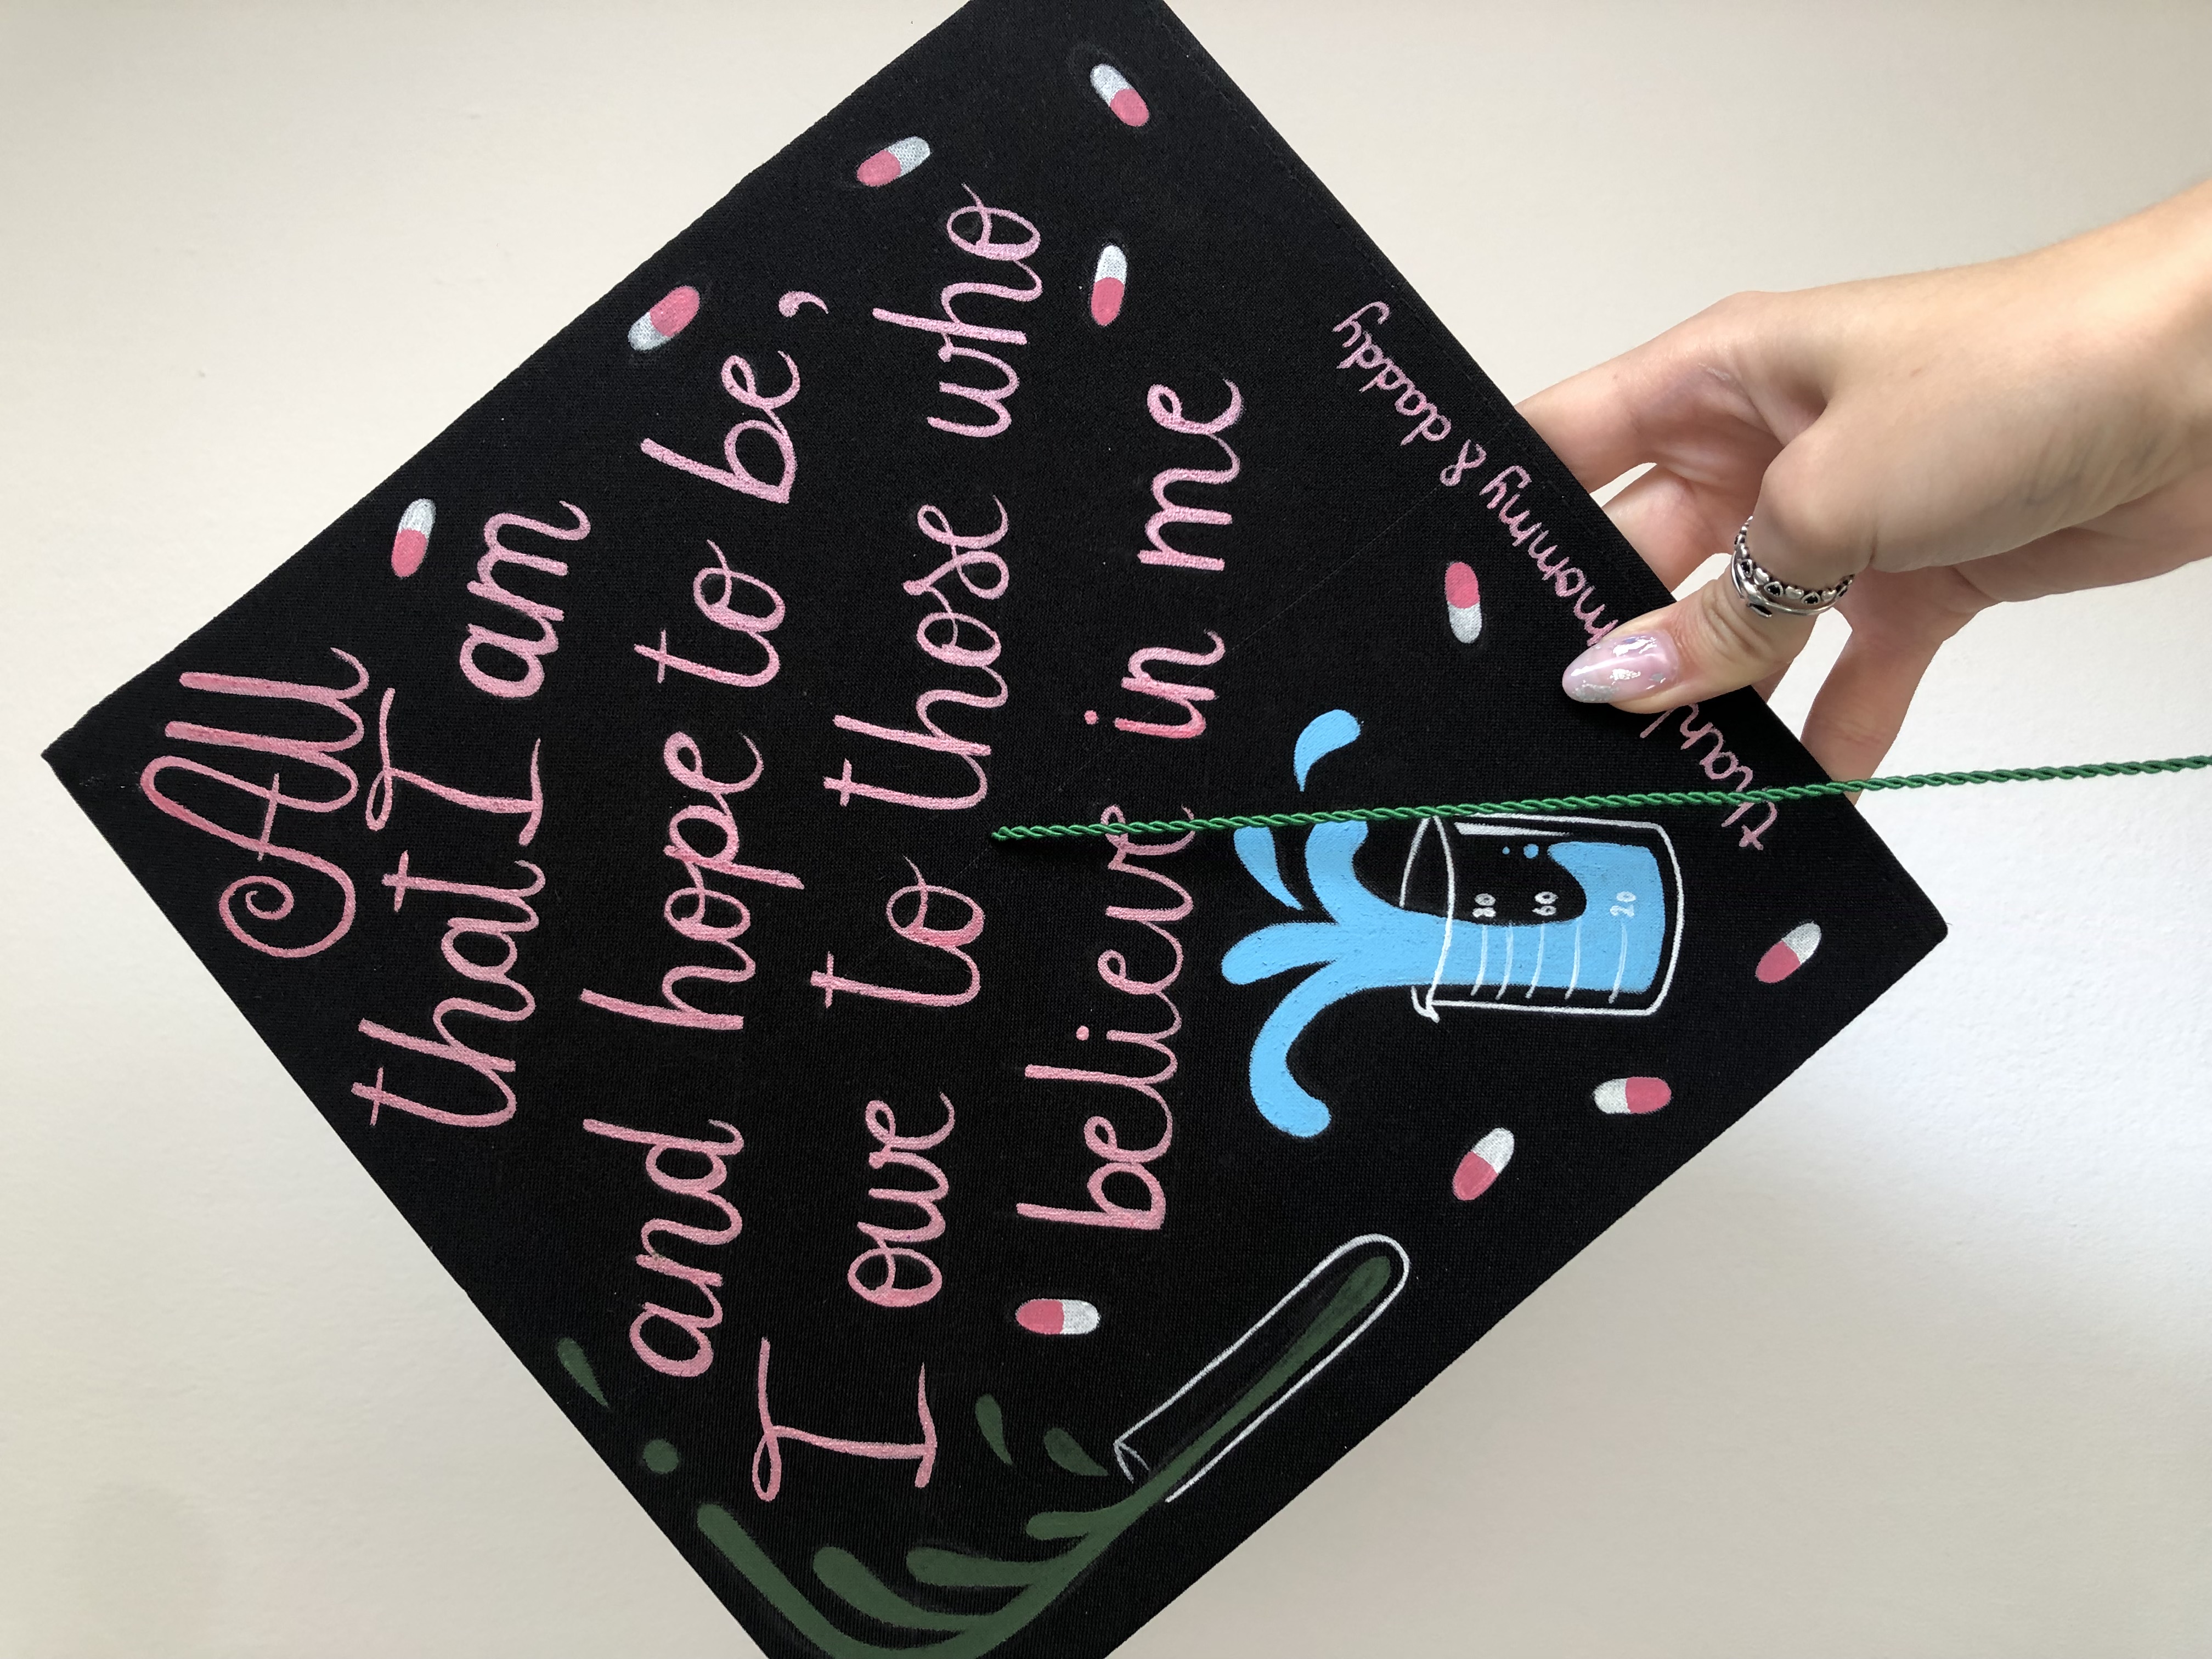 All
that I am
and hope to be,
I owe to those who
believe in me
80
60
20
mommy & daddy